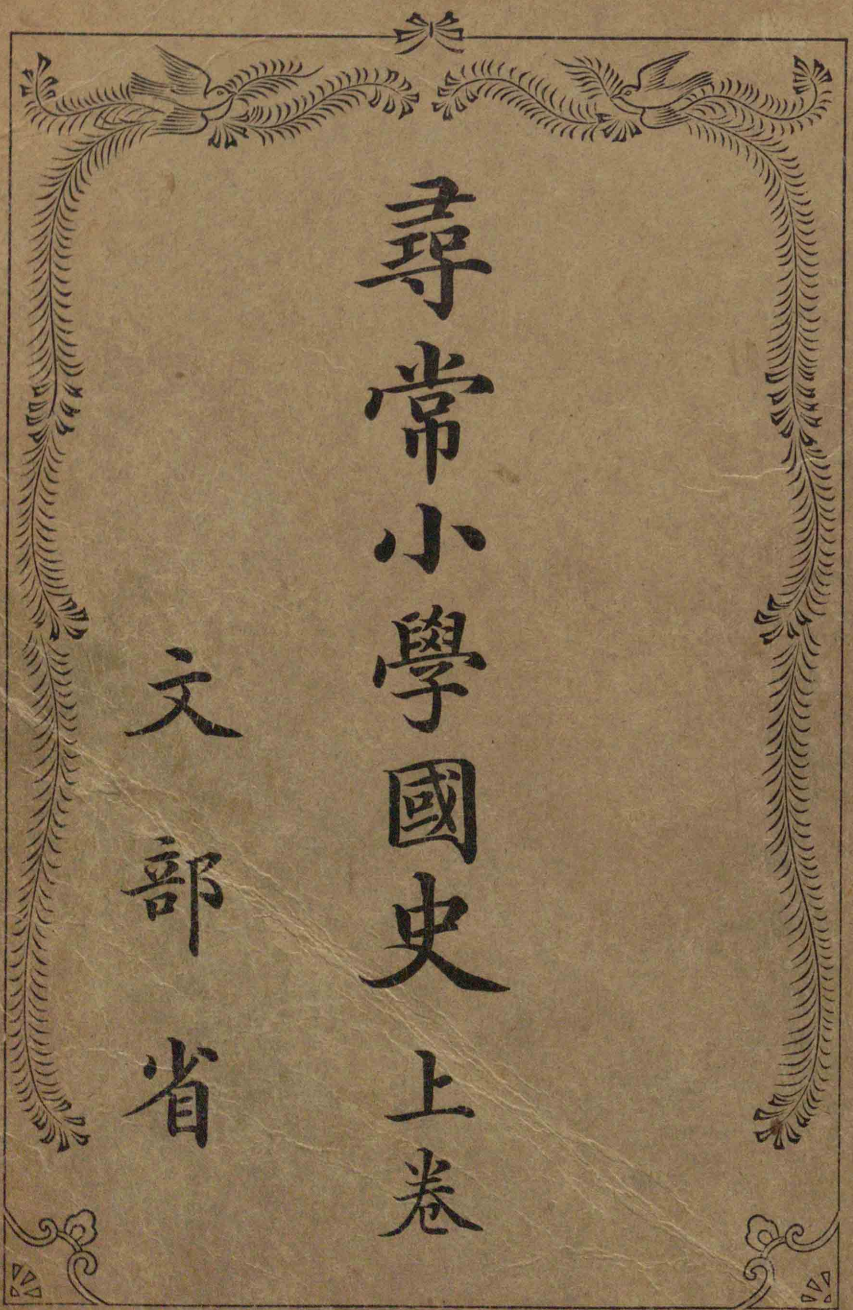 尋常小學國史 上卷
文部省